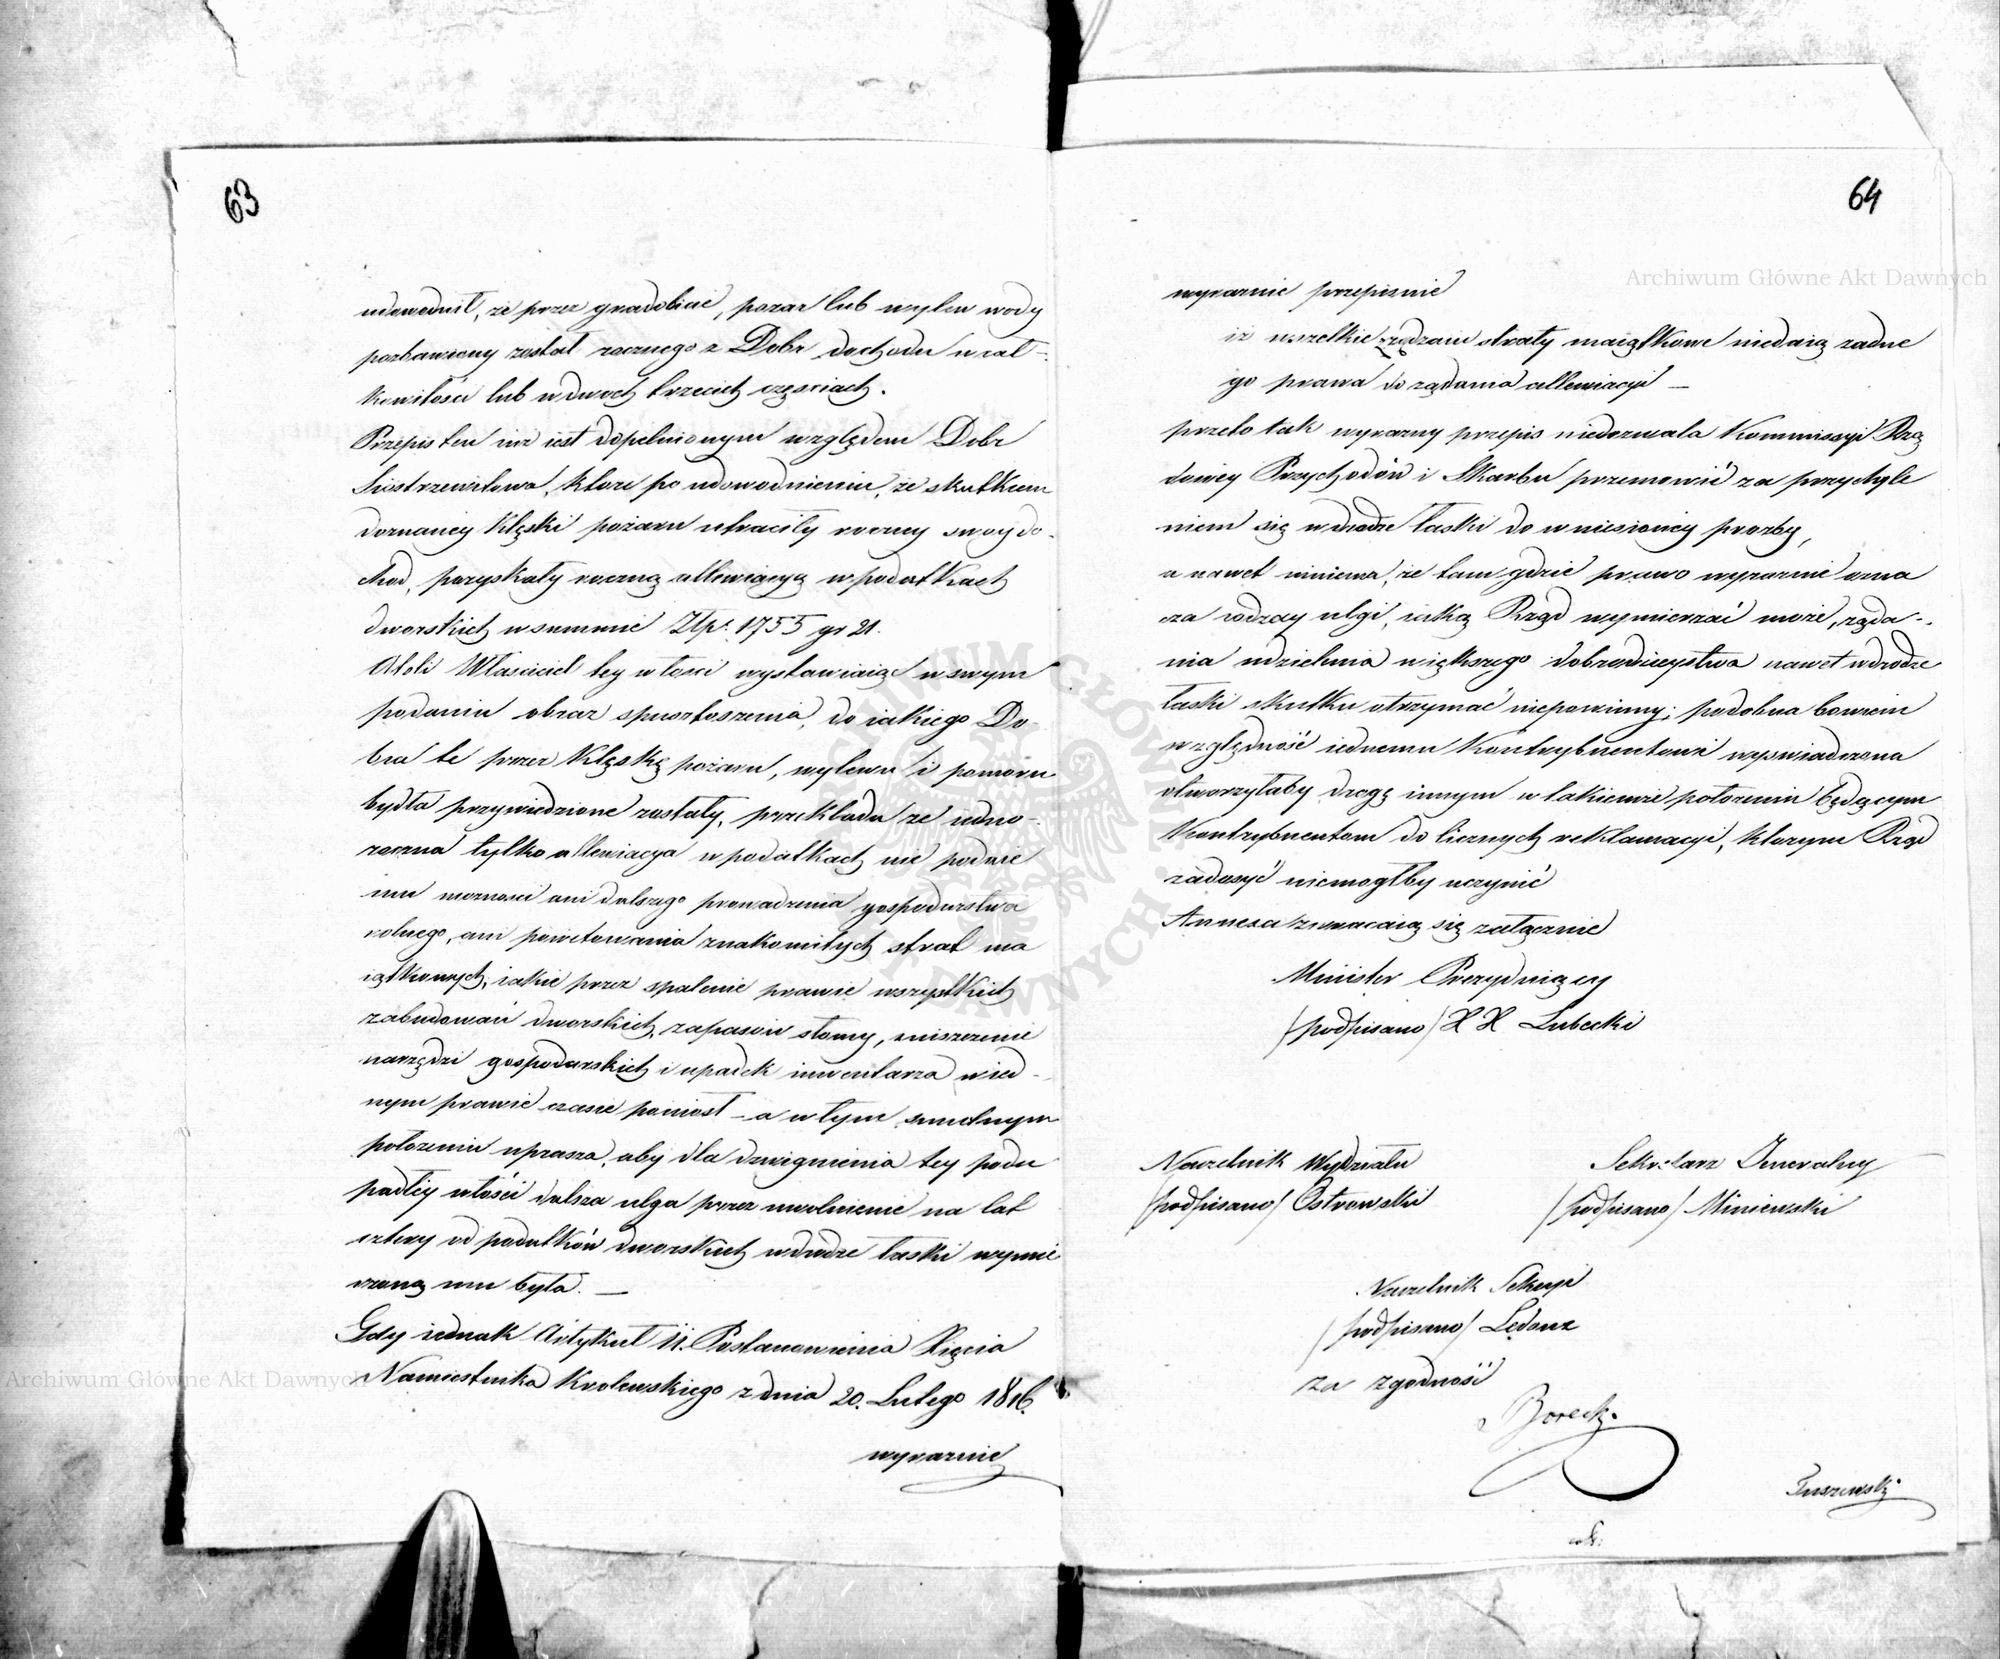 63
udowodnił, że przez gradobicie, pożar lub wylew wody
pozbawiony został rocznego z Dobr dochodu w cał-
kowitości lub w dwoch trzecich częściach.
Przepis ten iuż iest dopełnionym względem Dobr
Siostrzewitowa, ktore po udowodnieniu, że skutkiem
doznaney klęski pożaru utraciły roczny swoy do-
chod, pozyskały roczną allewiacyą w podatkach
dworskich w summie Złp. 1755 gr 21.
Atoli Właściciel tey włości wystawiaiąc w swym
podaniu obraz spustoszenia, do iakiego Do-
bra te przez klęskę pożaru, wylewu i pomoru
bydła przywiedzione zostały, przekłada że iedno-
roczna tylko allewiacya w podatkach nie podaie
mu możności ani dalszego prowadzenia gospodarstwa
rolnego, ani powetowania znakomitych strat ma
iątkowych, iakie przez spalenie prawie wszystkich
zabudowań dworskich, zapasow słomy, zniszczenie
narzędzi gospodarskich i upadek inwentarza w ied-
nym prawie czasie poniosł – a w tym smutnym
położeniu uprasza, aby dla dzwignienia tey podu
padłey włości dalsza ulga przez uwolnienie na lat
cztery od podatków dworskich w drodze łaski wymie
rzoną mu była. —
Gdy iednak Artykuł 11. Postanowienia Xięcia
Namiestnika Krolewskiego z dnia 20. Lutego 1816.
wyraznie
64
wyraznie przepisuie
iż wszelkie rodzaiu straty maiątkowe niedaią żadne
go prawa do żądania allewiacyi —
przeto tak wyrazny przepis niedozwala Kommissyi Rzą
dowey Przychodów i Skarbu przemowić za przychyle
niem się w drodze łaski do wniesioney prozby,
a nawet mniema, że tam gdzie prawo wyraznie ozna
cza rodzay ulgi, iaką Rząd wymierzać może, żąda-
nia udzielenia większego dobrodzieystwa nawet w drodze
łaski skutku otrzymać niepowinny; podobna bowiem
względność iednemu Kontrybuentowi wyswiadczona
otworzyłaby drogę innym w takiemże położeniu będącym
Kontrybuentom do licznych reklamacyi, ktorym Rząd
zadosyć niemogłby uczynić
Annexa zwracaią się załącznie
Minister Prezyduiący
/podpisano/ X X Lubecki
Naczelnik Wydziału
/podpisano/ Ostrowski
Sekretarz Jeneralny
/podpisano/ Miniewski
Naczelnik Sekcyi
/podpisano/ Ledoux
za zgodność
Borecki
Tuszewski
Archiwum Główne Akt Dawnych
Archiwum Główne Akt Dawnych
ARCHIWUM GŁÓWNE AKT DAWNYCH